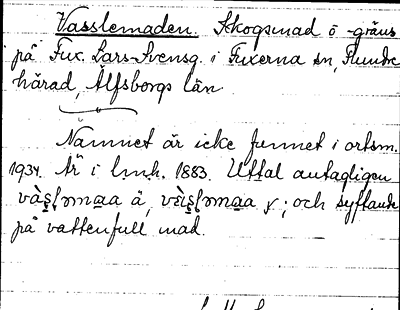 Vasslemaden. Skogsmad ö -gräns
på Fux. Lars-Svensg. i Fuxerna sn, Flundre
härad, Älfsborgs län.
Namnet är icke funnet i ortsm.
1934. Är i lmh. 1883. Uttal antagligen
ä, ; och syftande
på vattenfull mad.